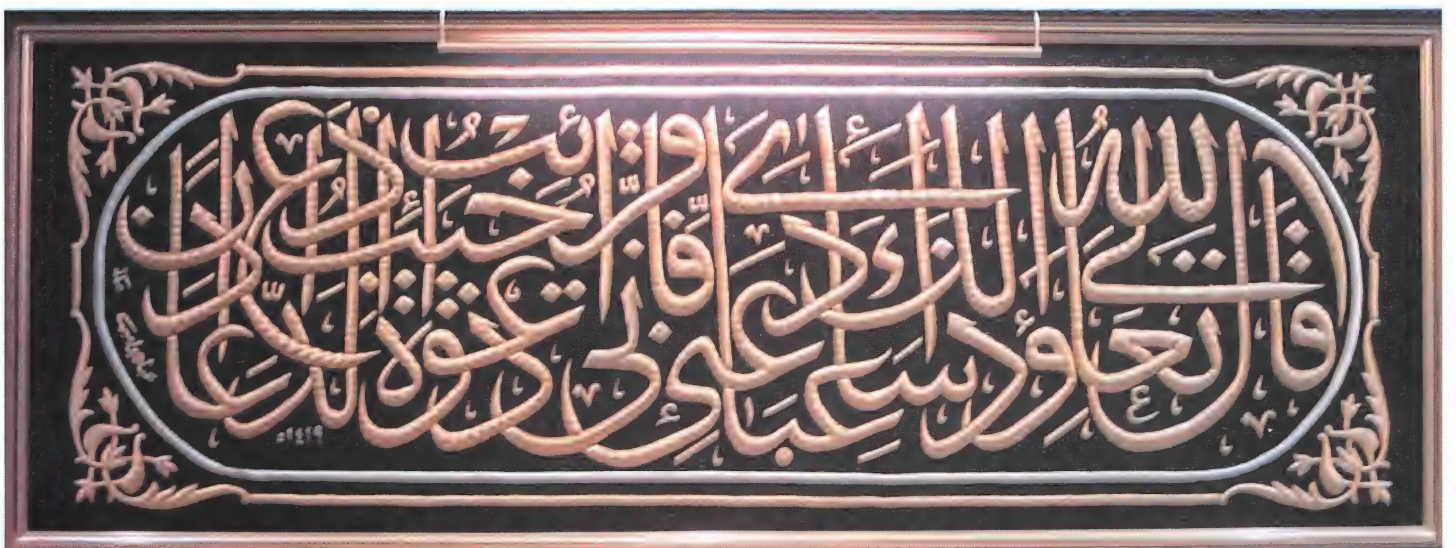 قال الله تعالى وإذا سألك عبادي عني فإني قريب أجيب دعوة الداع إذا دعان
١٤١٩هـ